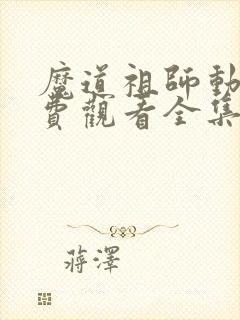 魔道祖師動
費觀看全集
蔣澤